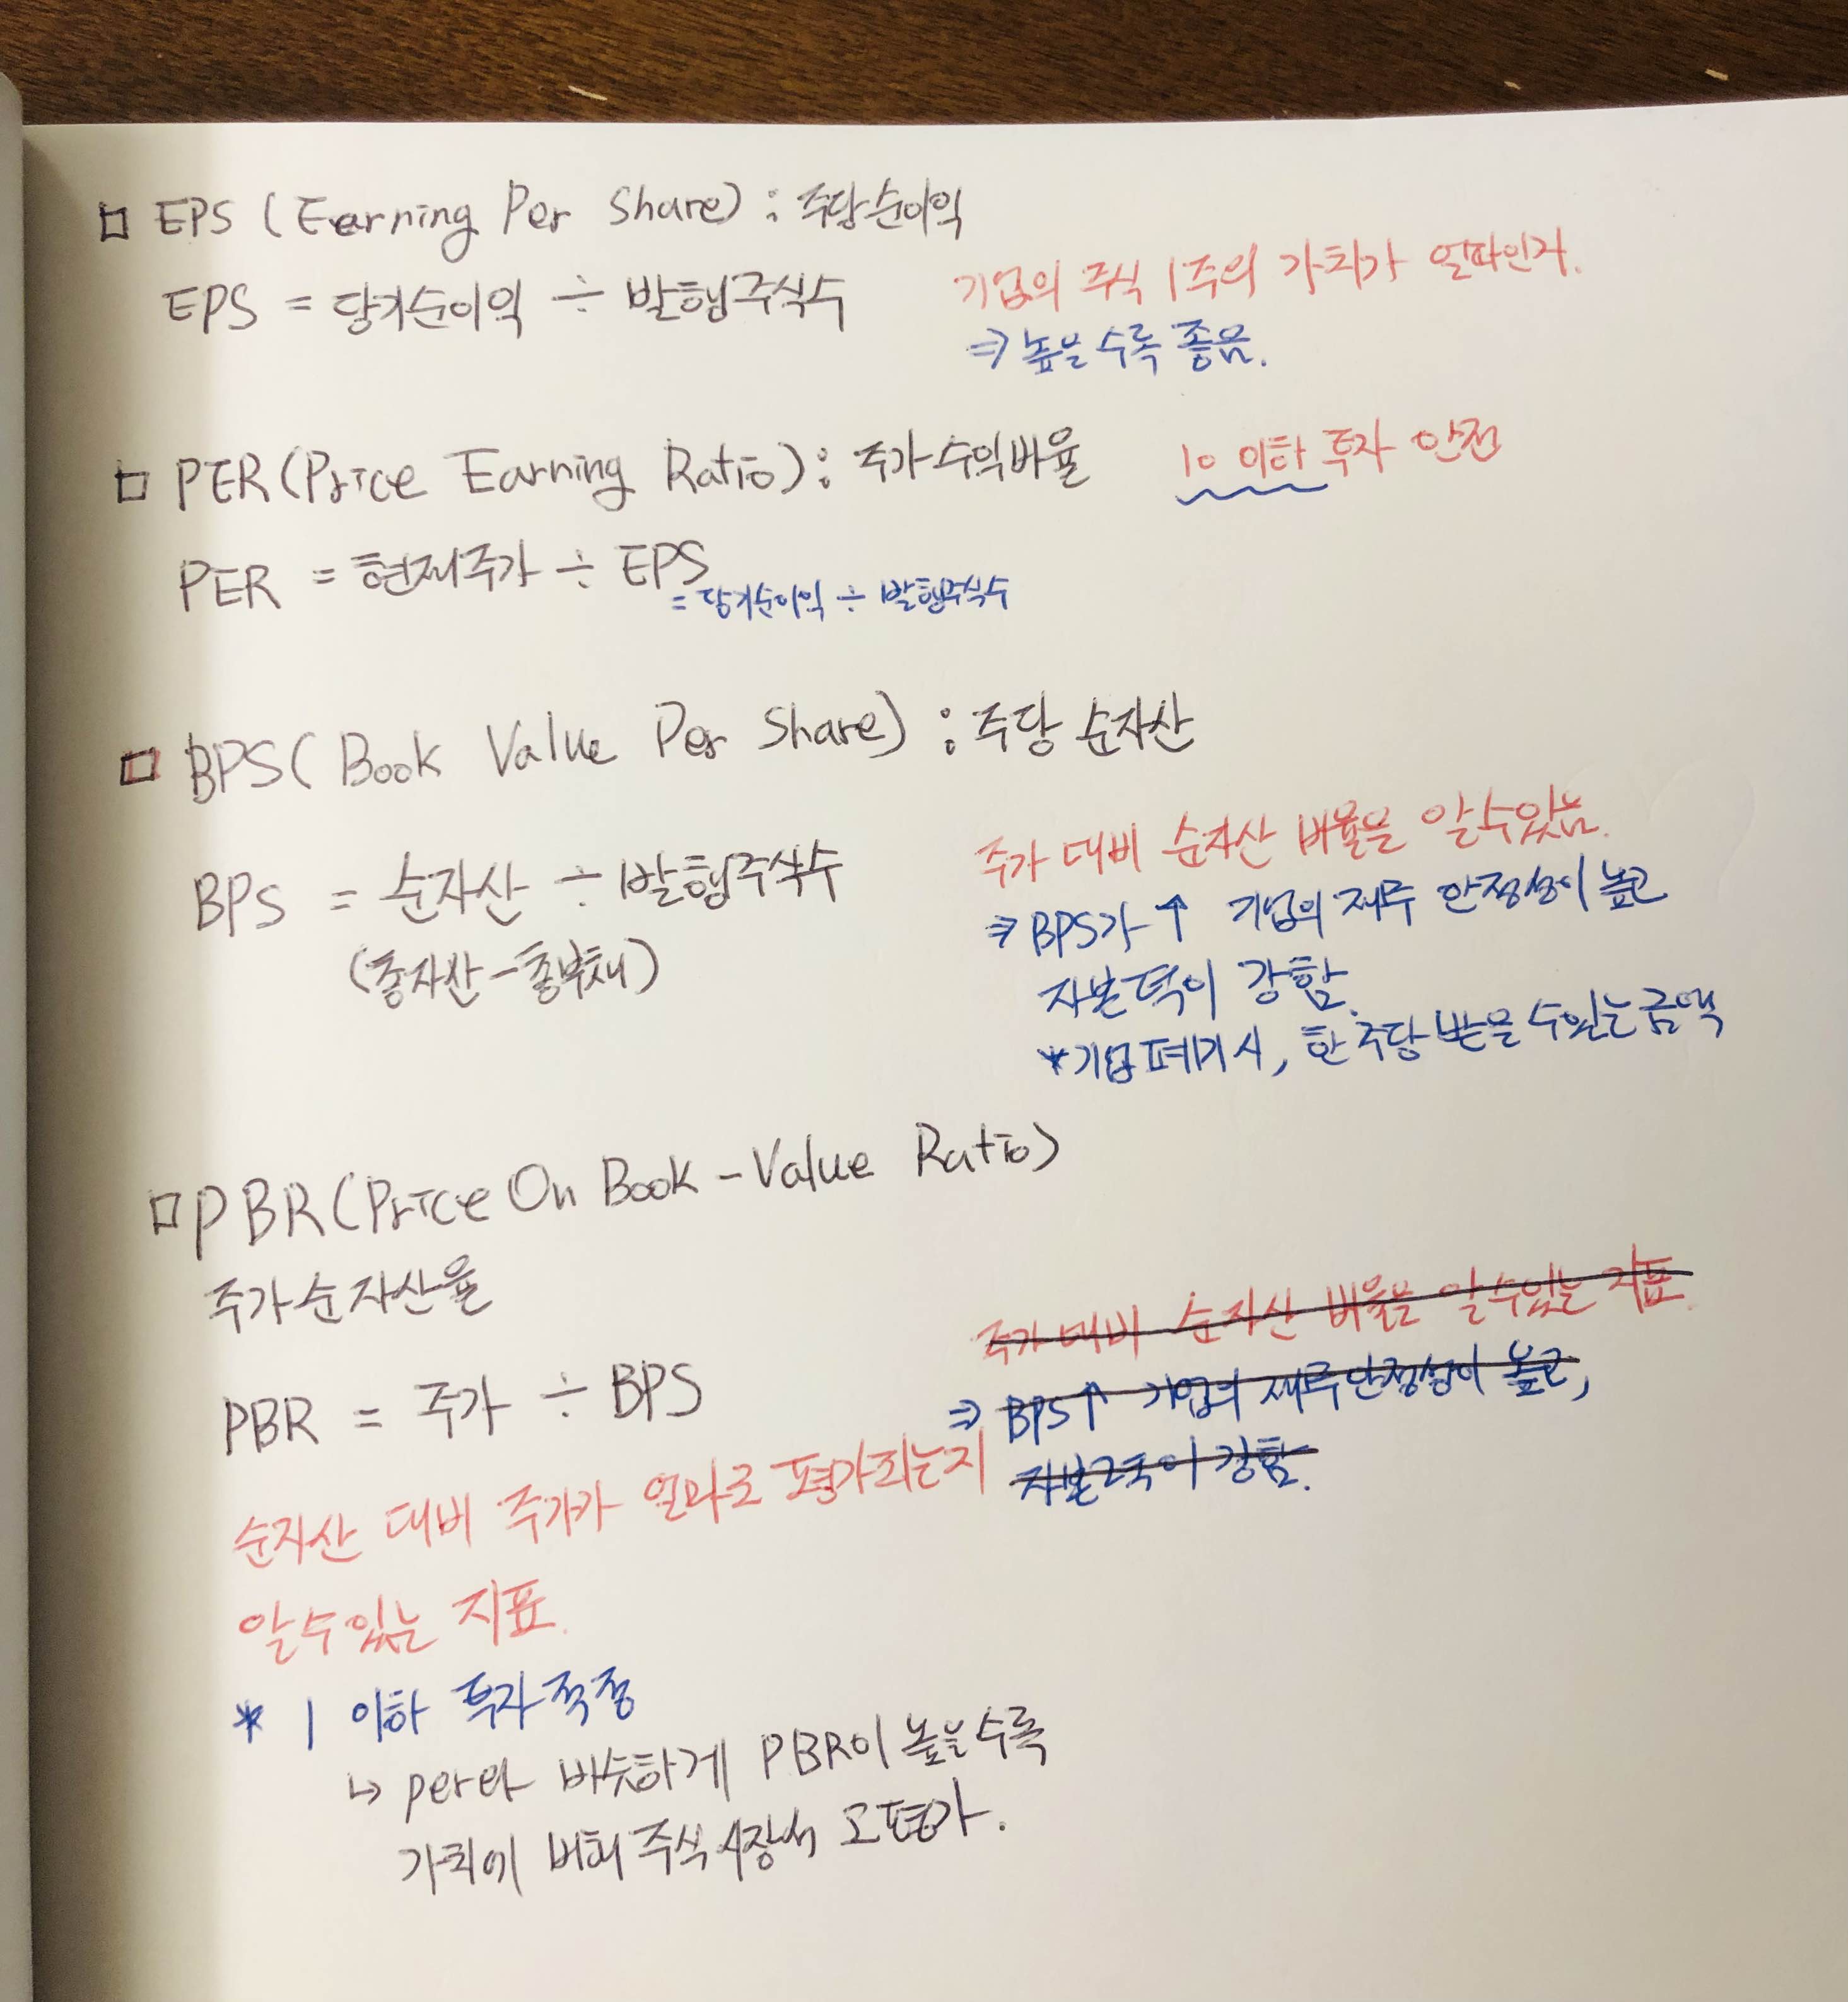 □ EPS (Earning Per Share) : 주당순이익
EPS = 당기순이익 ÷ 발행주식수
기업의 주식 1주의 가치가 얼마인가.
⇒ 높을수록 좋음.
□ PER(Price Earning Ratio) : 주가수익비율
10 이하 투자 안전
PER = 현재주가 ÷ EPS
= 당기순이익 ÷ 발행주식수
□ BPS( Book Value Per Share) : 주당 순자산
BPS = 순자산 ÷ 발행주식수
(총자산-총부채)
주가 대비 순자산 비율을 알수있음.
⇒ BPS가 ↑ 기업의 재무 안정성이 높고
자본력이 강함.
*기업 폐기시, 한 주당 받을 수있는금액
□ PBR(Price On Book-Value Ratio)
주가순자산율
PBR = 주가 ÷ BPS
주가 대비 순자산 비율을 알수있는 지표.
⇒ BPS↑ 기업의 재무안정성이 높고,
자본력이 강함.
순자산 대비 주가가 얼마로 평가되는지
알수있는 지표.
* 1 이하 투자적정
↳ per와 비슷하게 PBR이 높을수록
가치에 비해 주식시장서 고평가.